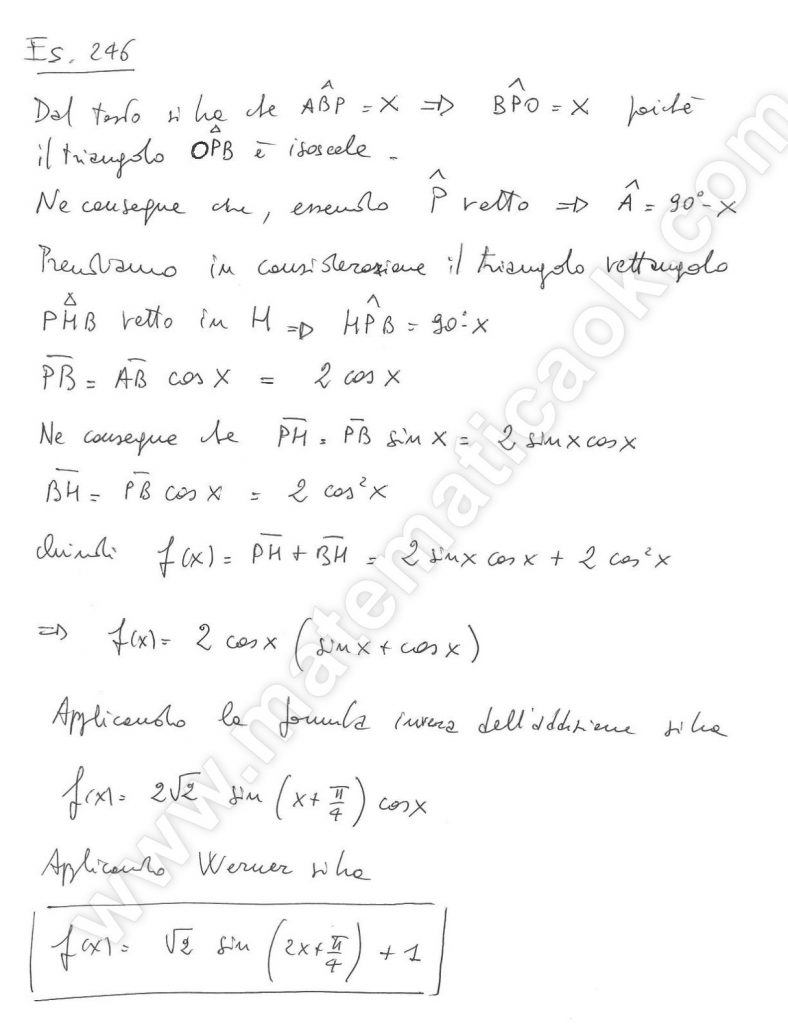 Es. 246
Dal testo si ha che AB̂P = x ⇒ BP̂O = x poiché
il triangolo OPB è isoscele.
Ne consegue che, essendo P̂ retto ⇒ Â = 90° - x
Prendiamo in considerazione il triangolo rettangolo
PHB retto in H ⇒ HP̂B = 90° - x
P̅B̅ = A̅B̅ cos x = 2 cos x
Ne consegue che P̅H̅ = P̅B̅ sin x = 2 sin x cos x
B̅H̅ = P̅B̅ cos x = 2 cos² x
Quindi f(x) = P̅H̅ + B̅H̅ = 2 sin x cos x + 2 cos² x
⇒ f(x) = 2 cos x (sin x + cos x)
Applicando la formula inversa dell'addizione si ha
f(x) = 2√2 sin (x + π/4) cos x
Applicando Werner si ha
f(x) = √2 sin (2x + π/4) + 1
www.matematicaok.com